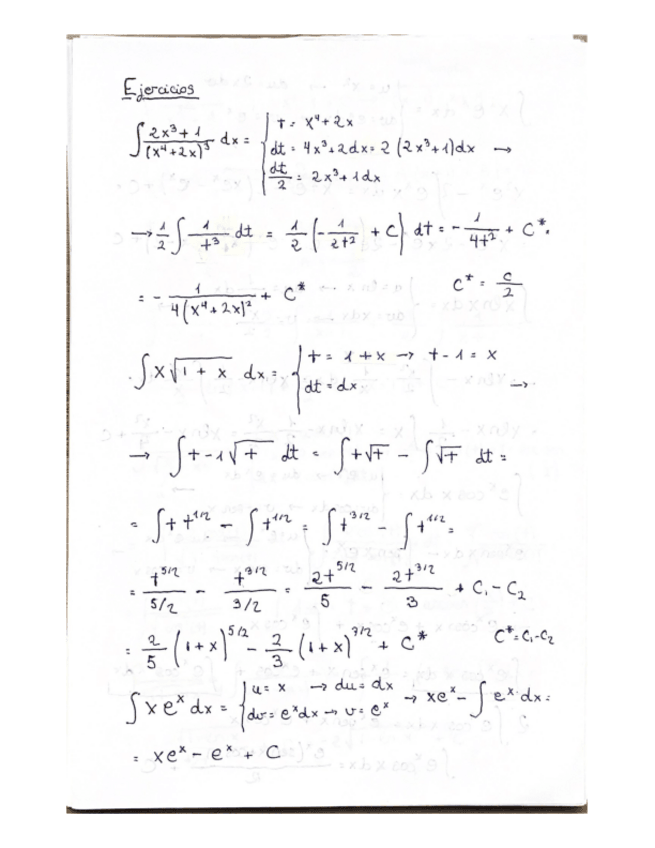 Ejercicios
∫ 2x³+1/(x⁴+2x)³ dx = { t = x⁴+2x
dt = 4x³+2dx = 2(2x³+1)dx →
dt/2 = 2x³+1dx
→ 1/2 ∫ 1/t³ dt = 1/2 (-1/2t² + C) dt = -1/4t² + C*.
= -1/4(x⁴+2x)² + C* C* = C/2
∫ x√1+x dx = { t = 1+x → t-1 = x
dt = dx →
→ ∫ t-1√t dt = ∫ t√t - ∫ √t dt =
= ∫ t t^1/2 - ∫ t^1/2 = ∫ t^3/2 - ∫ t^1/2 =
= t^5/2/5/2 - t^3/2/3/2 = 2t^5/2/5 - 2t^3/2/3 + C₁-C₂
= 2/5 (1+x)^5/2 - 2/3 (1+x)^3/2 + C* C* = C₁-C₂
∫ x eˣ dx = { u = x → du = dx
dv = eˣdx → v = eˣ → xeˣ - ∫ eˣ·dx =
= xeˣ - eˣ + C